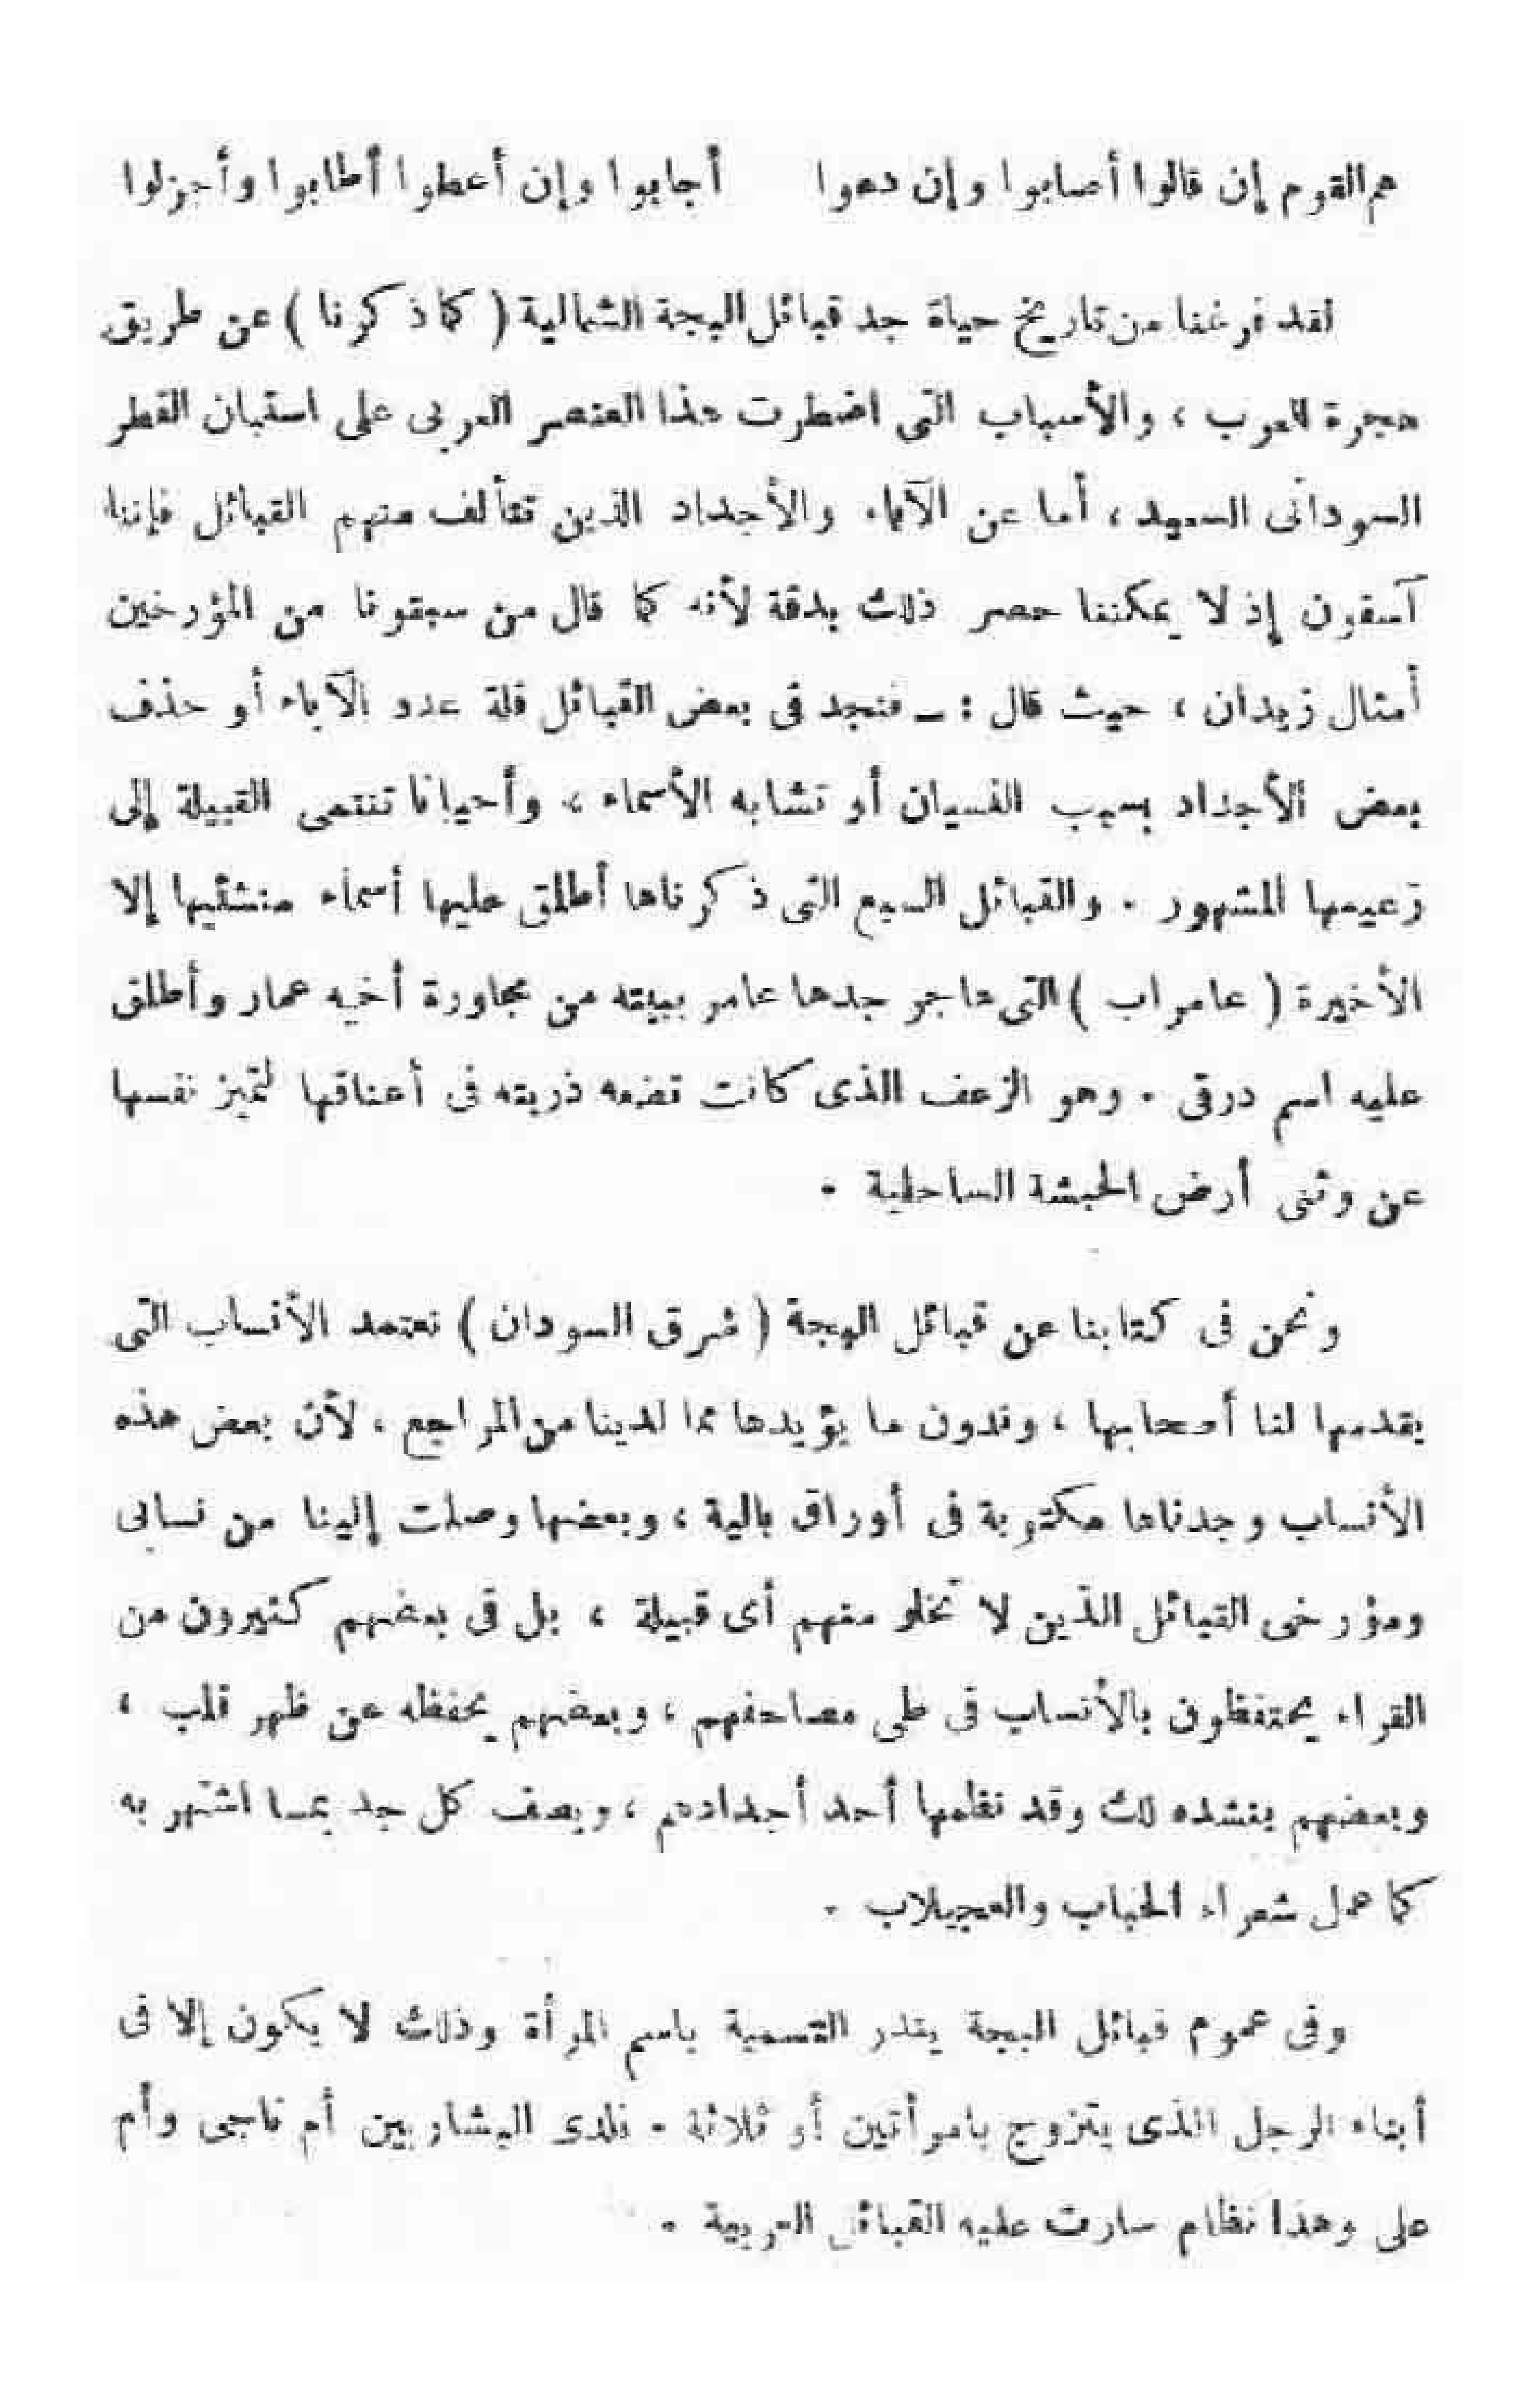 هم القوم إن قالوا أصابوا وإن دعوا أجابوا وإن أعطوا أطابوا وأجزلوا
لقد فرغنا من تاريخ حياة جد قبائل البجة الشمالية ( كما ذكرنا ) عن طريق
هجرة العرب ، والأسباب التى اضطرت هذا العنصر العربى على استبان القطر
السودانى السعيد ، أما عن الآباء والأجداد الذين تتألف منهم القبائل فإننا
آسفون إذ لا يمكننا حصر ذلك بدقة لأنه كما قال من سبقونا من المؤرخين
أمثال زيدان ، حيث قال : ــ فنجد فى بعض القبائل قلة عدد الآباء أو حذف
بعض الأجداد بسبب النسيان أو تشابه الأسماء ، وأحيانا تنتمى القبيلة إلى
زعيمها المشهور . والقبائل السبع التى ذكرناها أطلق عليها أسماء منشئيها إلا
الأخيرة ( عامراب ) التى هاجر جدها عامر ببيته من مجاورة أخيه عمار وأطلق
عليه اسم درقى . وهو الزعف الذى كانت تضعه ذريته فى أعناقها لتميز نفسها
عن وثنى أرض الحبشة الساحلية .
ونحن فى كتابنا عن قبائل البجة ( شرق السودان ) نعتمد الأنساب التى
يقدمها لنا أصحابها ، وندون ما يؤيدها مما لدينا من المراجع ، لأن بعض هذه
الأنساب وجدناها مكتوبة فى أوراق بالية ، وبعضها وصلت إلينا من نسابى
ومؤرخى القبائل الذين لا تخلو منهم أى قبيلة ، بل فى بعضهم كثيرون من
القراء يحتفظون بالأنساب فى طى مصاحفهم ، وبعضهم يحفظه عن ظهر قلب ،
وبعضهم ينشده لك وقد نظمها أحد أجدادهم ، ويصف كل جد بمسا اشتهر به
كما عمل شعراء الحباب والعجيلاب .
وفى عموم قبائل البجة يندر التسمية باسم المرأة وذلك لا يكون إلا فى
أبناء الرجل الذى يتزوج بامرأتين أو ثلاثة . فلدى البشاريين أم ناجى وأم
على وهذا نظام سارت عليه القبائل العربية .